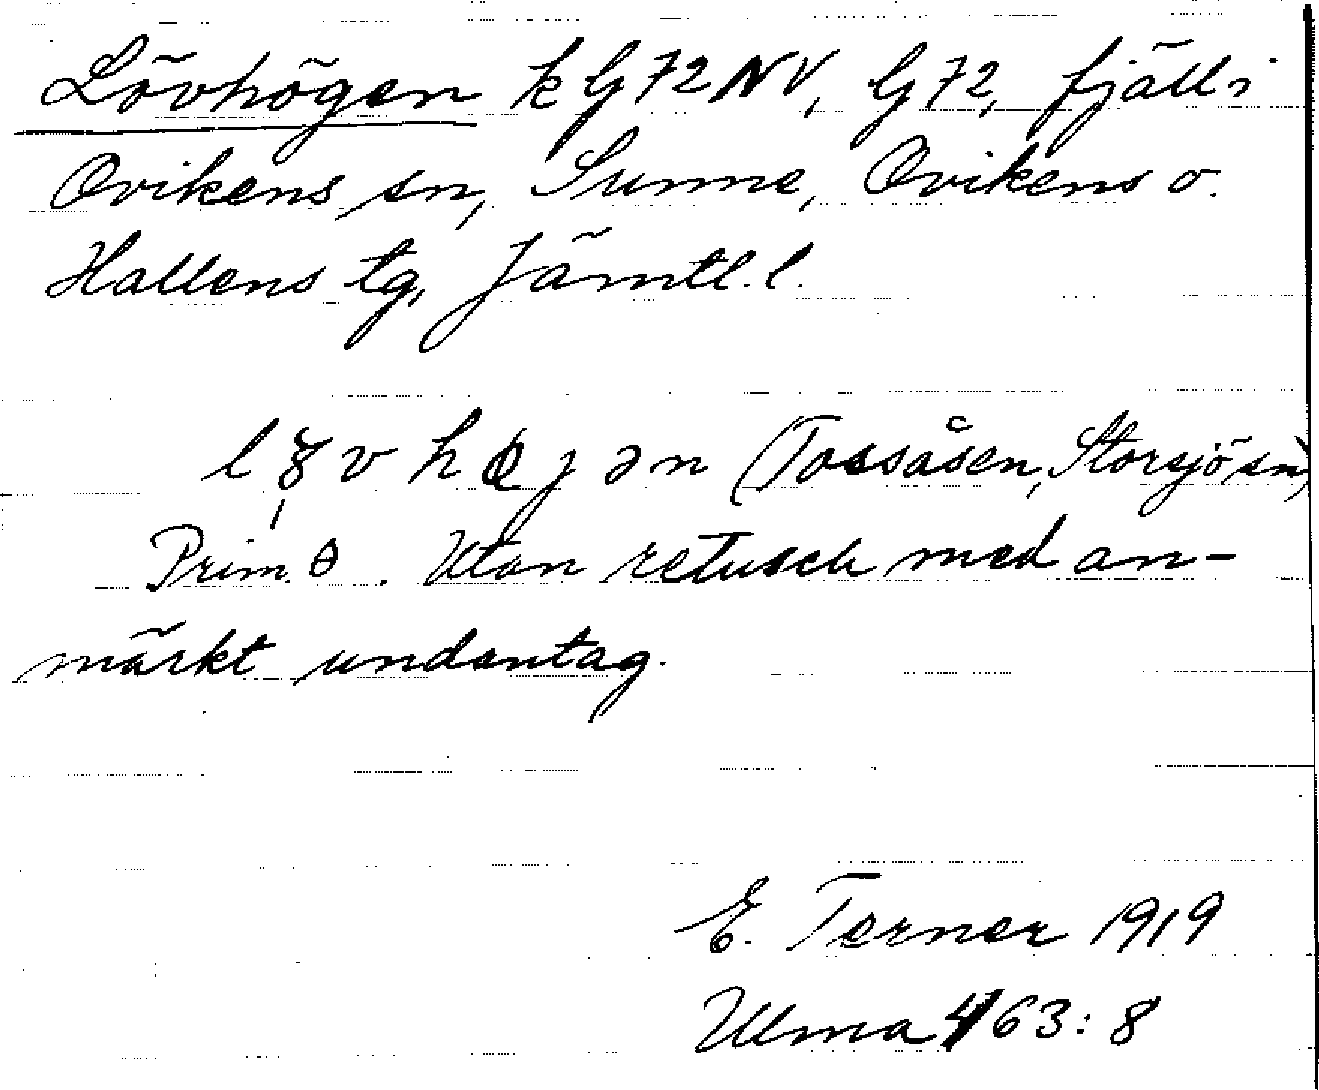 Lövhögen k G72NV, G72, fjäll i
Ovikens sn, Sunne, Ovikens o.
Hallens tg, Jämtl. l.
(Tossåsen, Storsjö sn)
Prim. θ. Utan retusch med an-
märkt undantag.
E. Terner 1919
Ulma 463:8